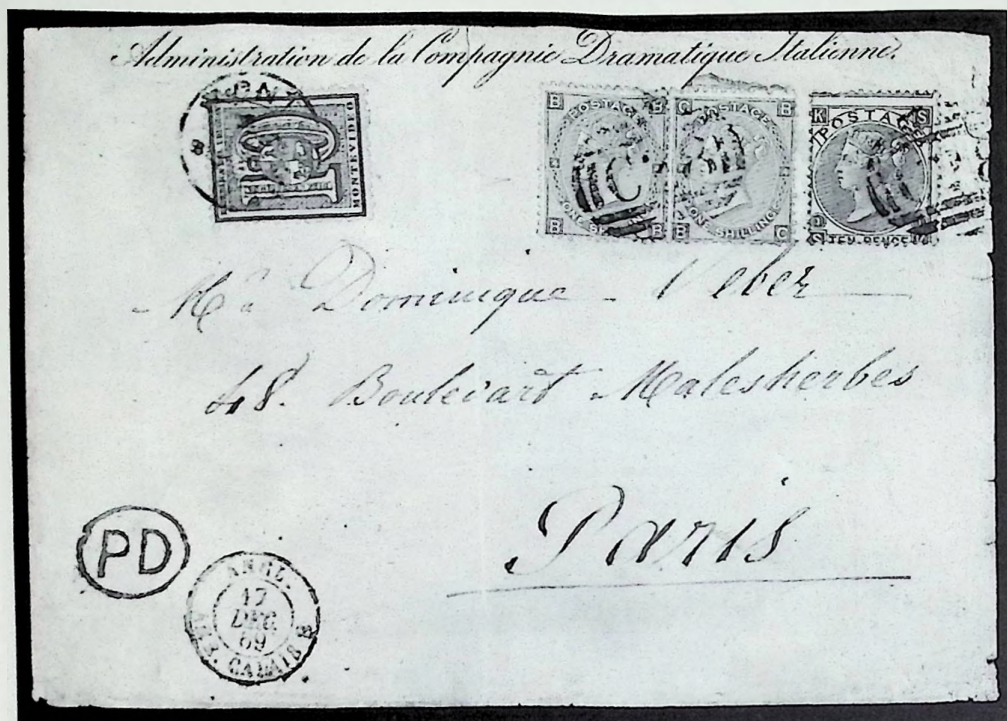 Administration de la Compagnie Dramatique Italienne.
MONT
10
MONTEVIDEO
B B
POSTAGE
ONE
B B
C B
POSTAGE
ONE SHILLING
B C
K S
POSTAGE
TEN PENCE
C 30
Dominique Veber
48. Boulevart Malesherbes
Paris
PD
ANGL.
17
DEC.
69
CALAIS